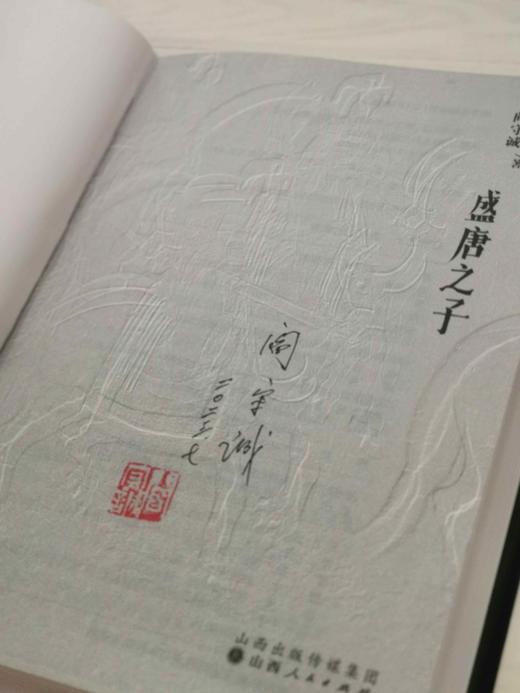 阎守诚 著
盛唐之子
阎守诚
二〇二三、七
山西出版传媒集团
山西人民出版社